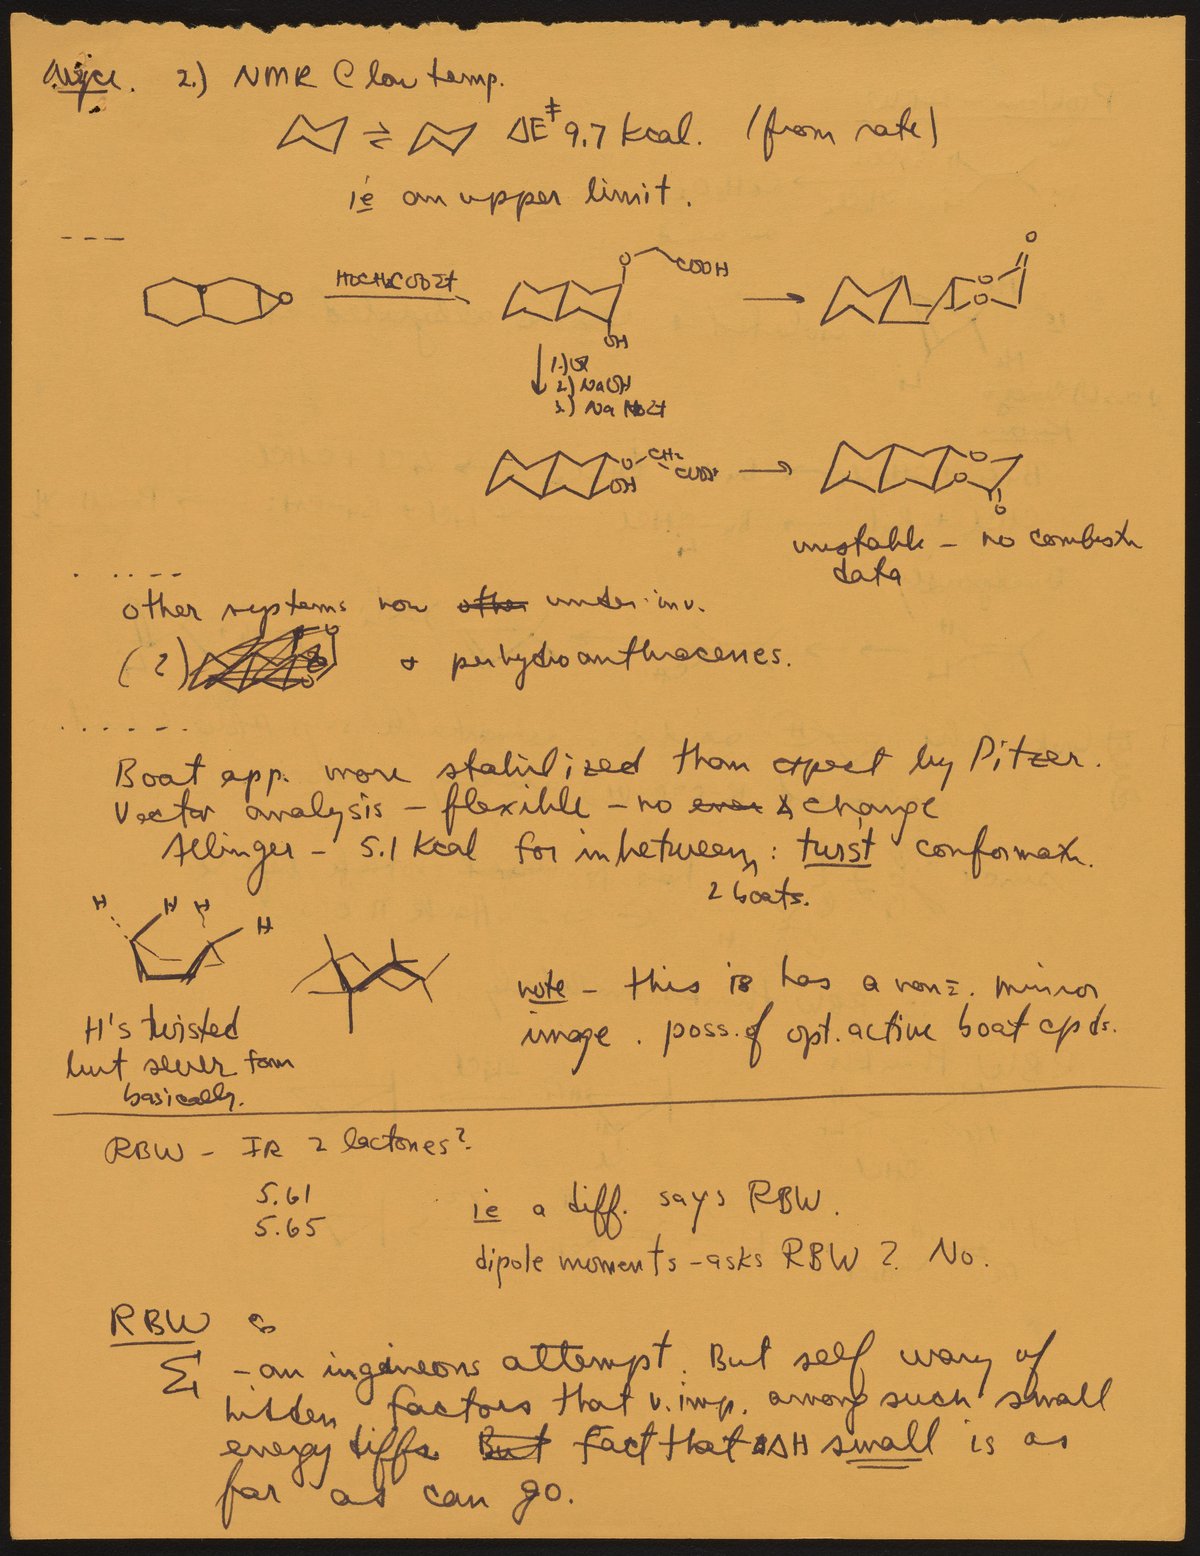 2.) NMR @ low temp.
⇌ ΔE‡ 9.7 kcal. (from rate)
ie an upper limit.
O
O COOH
HOCH2COOEt
O
O
O
OH
1.)
2) NaOH
3) Na
O CH2
OH
O
O
O
unstable - no combustn
data
other systems now other under inv.
(2) O O + perhydroanthracenes.
Boat app. more stabilized than expect by Pitzer.
Vector analysis - flexible - no even Δ change
Allinger - 5.1 kcal for in between : twist conformatn.
2 boats.
H H H H
note - this is has a non≡. mirror
image. poss. of opt. active boat cpds.
H's twisted
but sever form
basically.
RBW - IR 2 lactones?
5.61
5.65
ie a diff. says RBW.
dipole moments - asks RBW? No.
RBW
Σ - an ingineous attempt. But self wary of
hidden factors that v. imp. among such small
energy diffs. But Fact that ΔH small is as
far as can go.